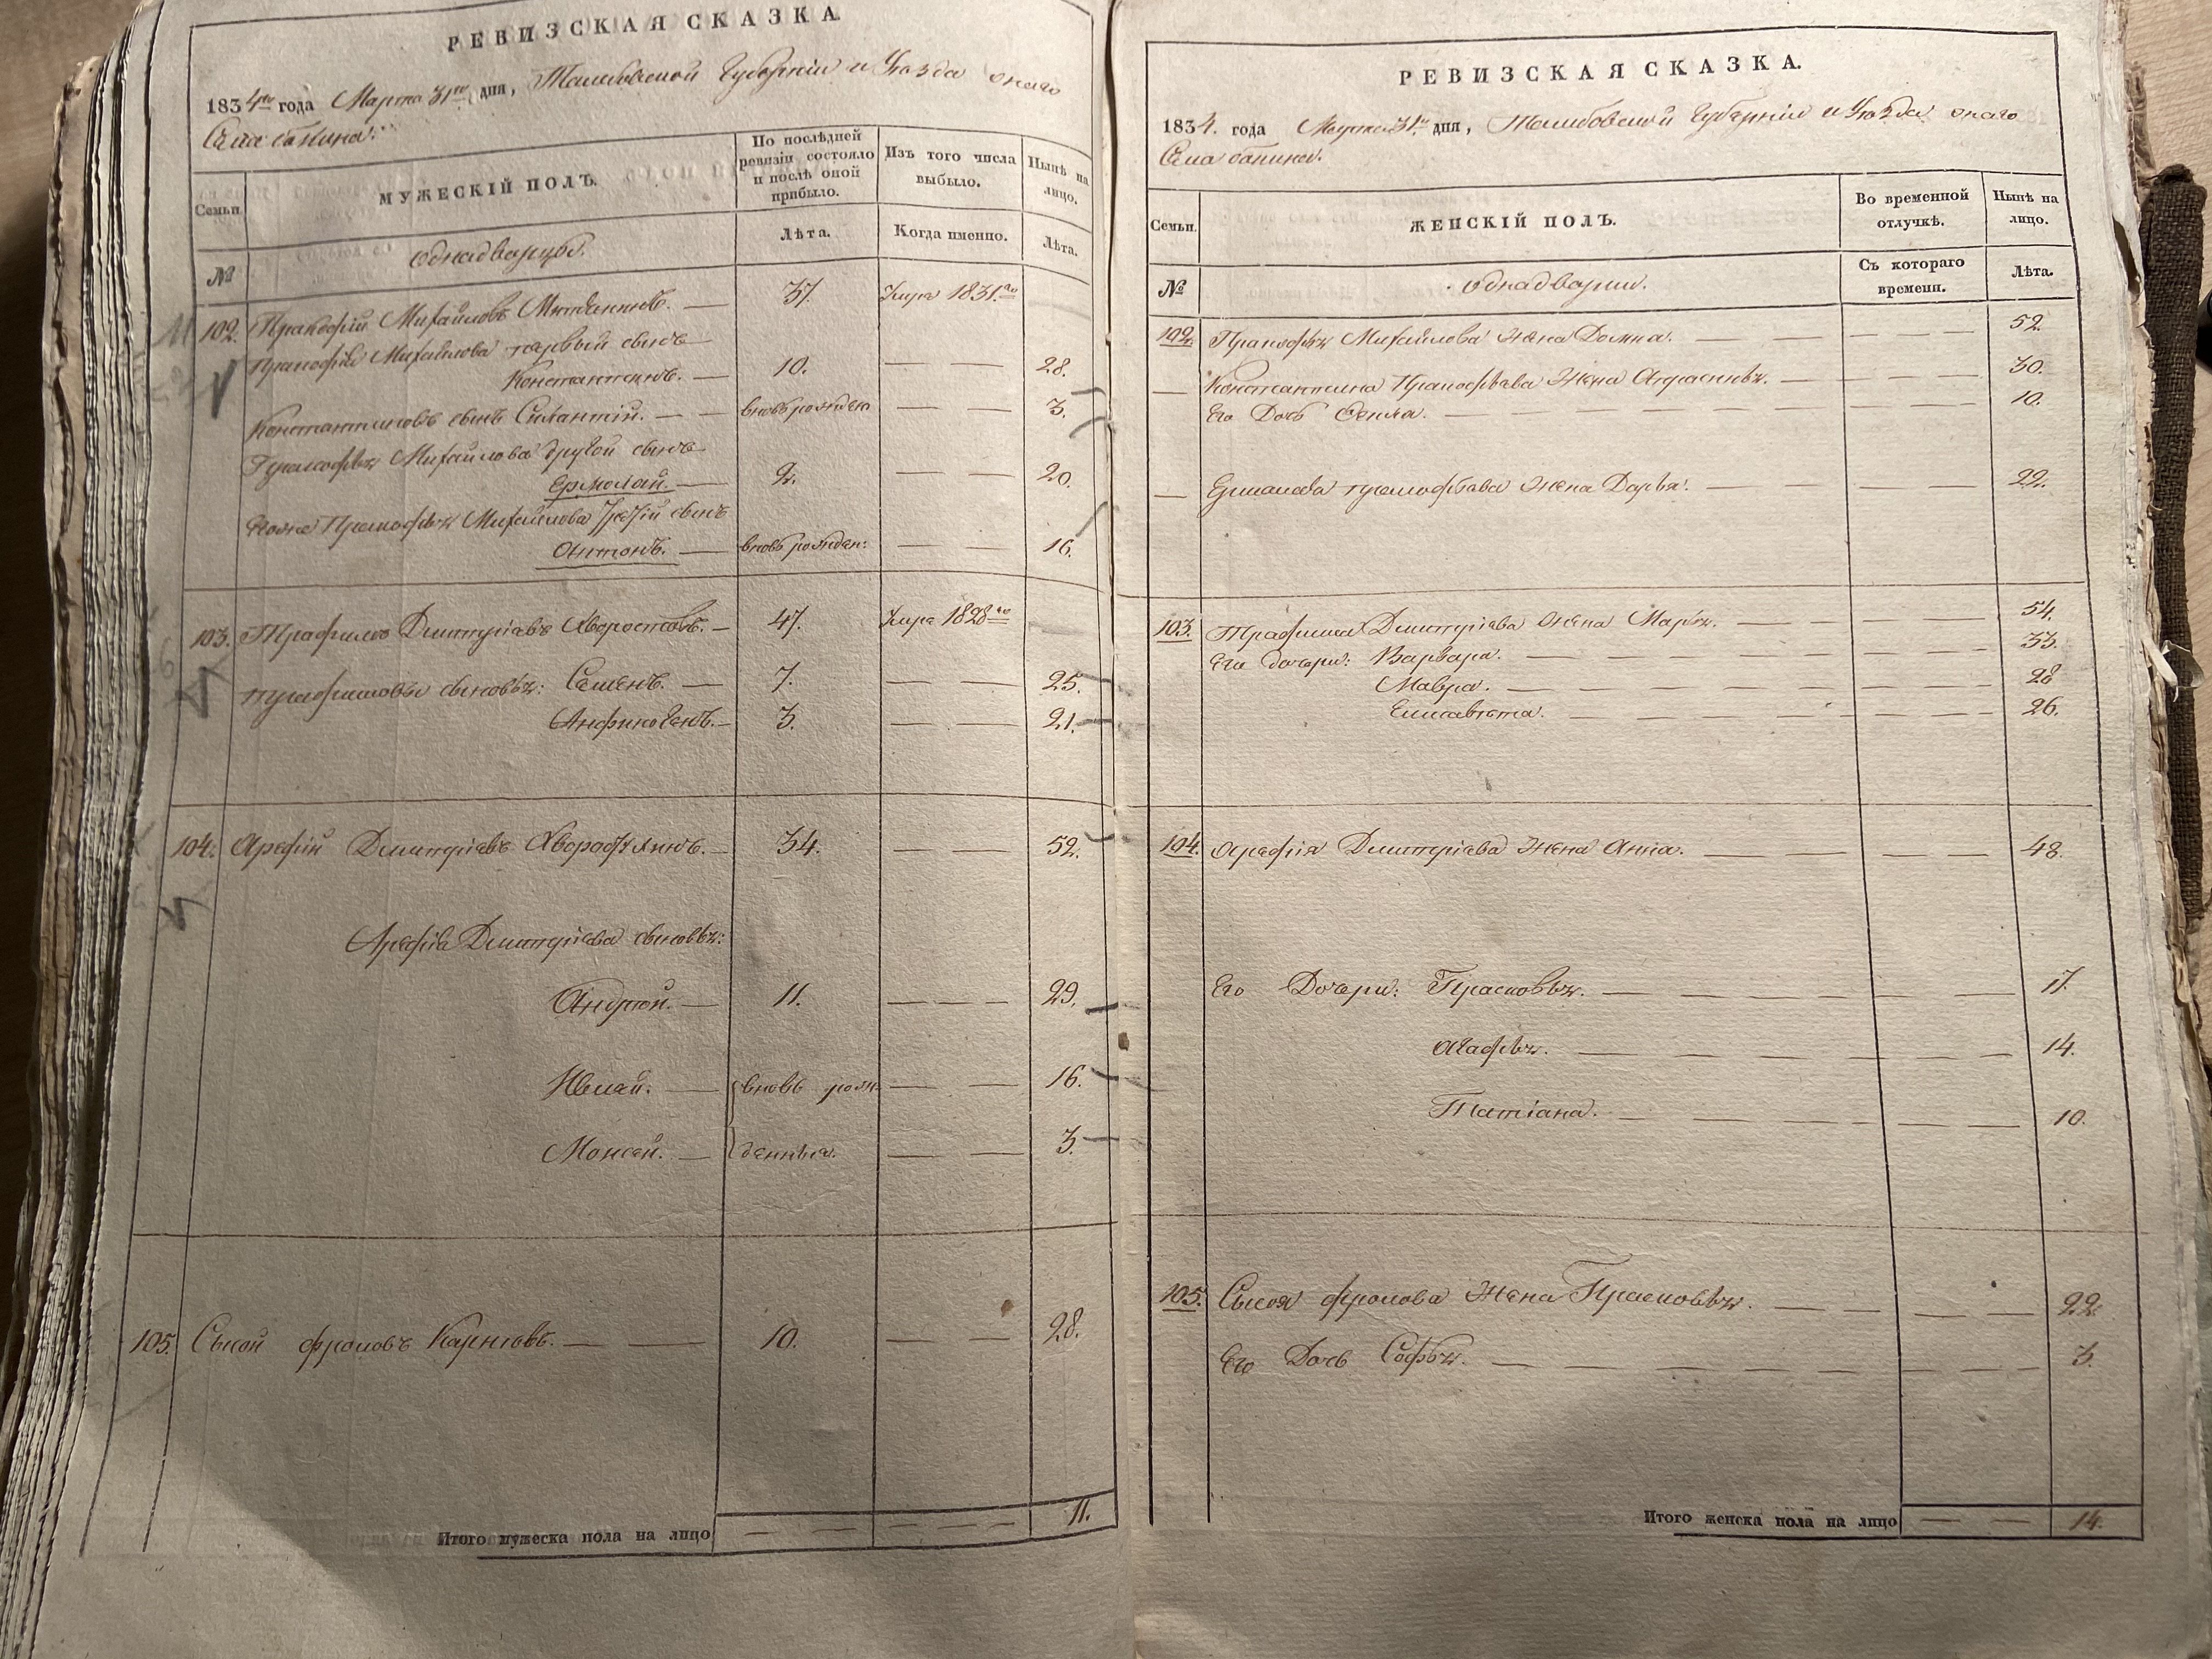 РЕВИЗСКАЯ СКАЗКА.
1834го года Марта 31го дня, Тамбовской Губернiи и Уѣзда онаго
Села
Семьи.
МУЖЕСКIЙ ПОЛЪ.
По послѣдней ревизiи состояло и послѣ оной прибыло.
Изъ того числа выбыло.
Нынѣ на лицо.
№
однадварцы.
Лѣта.
Когда именно.
Лѣта.
102. Пракофiй Михайловъ — 37. Умре 1831го
Пракофiя Михайлова первый сынъ
Константинъ. — 10. — — 28.
Константиновъ сынъ Силантiй. — — вновь рожден — — 3.
Пракофья Михайлова другой сынъ
Ермолай. — 2. — — 20.
Пракофья Михайлова третiй сынъ
Антонъ. — вновь рожден: — — 16.
103. Трафимъ Дмитрiевъ Хворостовъ. — 47. Умре 1828го
Трафимовы сыновья: Семенъ. — 7. — — 25.
Анфиногенъ. — 3. — — 21.
104. Арефiй Дмитрiевъ — 34. — — 52.
Арефiя Дмитрiева сыновья:
Андрей. — 11. — — — 29.
— вновь рож — — 16.
Моисей. — денныя. — — 3.
105. Сысой Фроловъ Карповъ. — — 10. — — 28.
Итого мужеска пола на лицо — — — — 11.
РЕВИЗСКАЯ СКАЗКА.
1834. года Марта 31го дня, Тамбовской Губернiи и Уѣзда онаго
Села
Семьи.
ЖЕНСКIЙ ПОЛЪ.
Во временной отлучкѣ.
Нынѣ на лицо.
№
однадварки.
Съ котораго времени.
Лѣта.
102. Пракофья Михайлова жена Домна. — — — — — 52.
— Константина Пракофьева жена Апраксинья. — — — — — 30.
Его Дочь Фекла. — — — — — — 10.
— Ермалая Пракофьева жена Дарья. — — — — — 22.
103. Трафима Дмитрiева жена Марья. — — — — — 54.
Его дочери: Варвара. — — — — — — 33.
Мавра. — — — — — — 28
Елисавета. — — — — — — 26.
104. Арефiя Дмитрiева жена Анна. — — — — — 48.
Его Дочери: Прасковья. — — — — — — 17.
Агафья. — — — — — — 14.
Татiана. — — — — — — 10.
105. Сысоя Фролова жена Прасковья. — — — — — 22.
Его Дочь Софья. — — — — — — 3.
Итого женска пола на лицо — — 14.